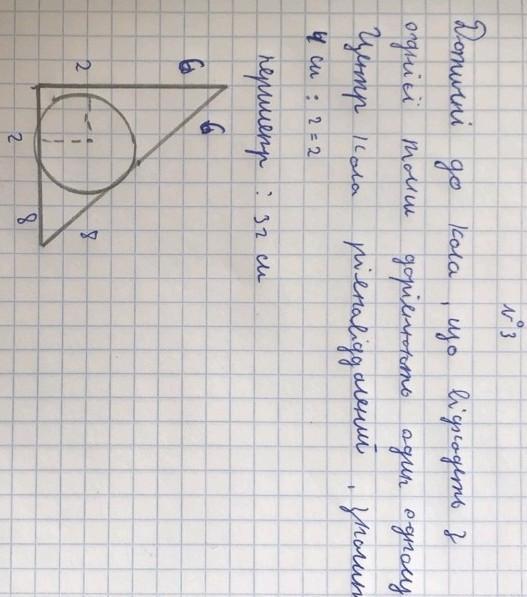 №3
Дотичні до кола, що відходять з
однієї точки дорівнюють один одному
Центр кола рівновіддалений,
4 см : 2 = 2
периметр : 32 см
2 6
6
2
8 8